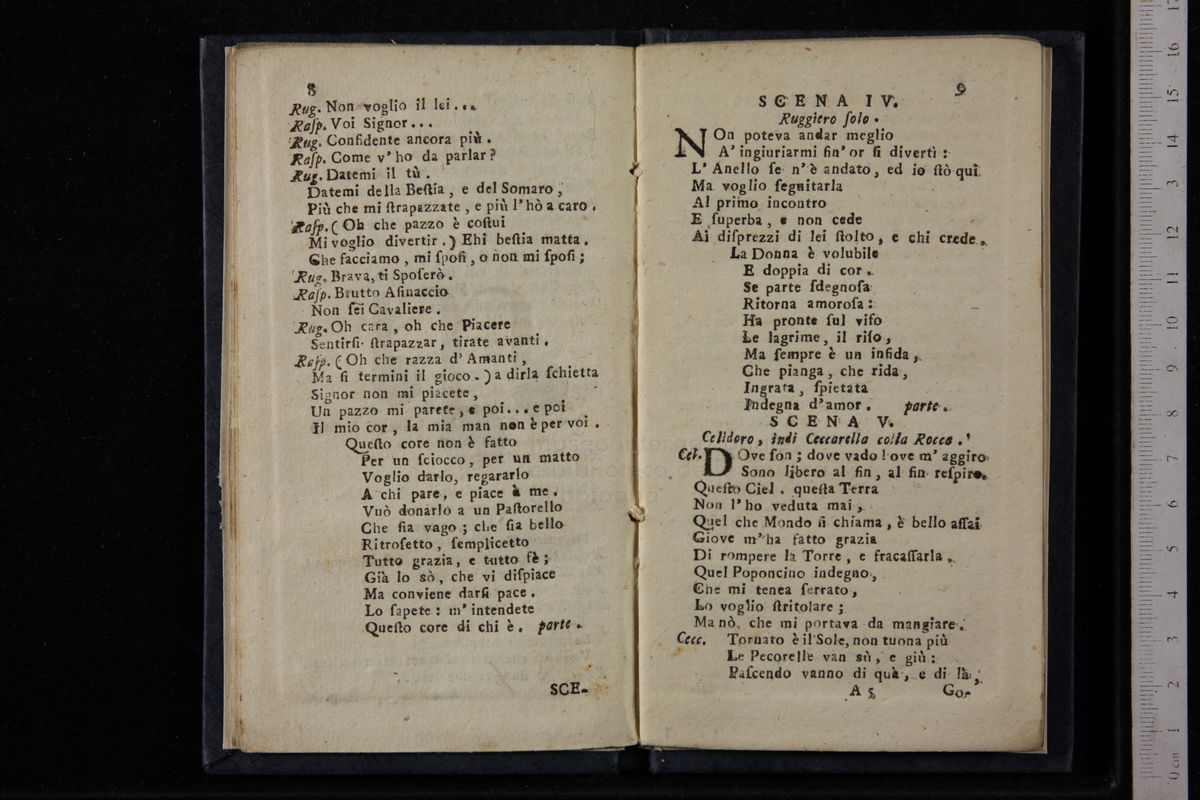 8
Rug. Non voglio il lei...
Raſp. Voi Signor...
Rug. Confidente ancora più.
Raſp. Come v' ho da parlar?
Rug. Datemi il tù.
Datemi della Beſtia, e del Somaro,
Più che mi ſtrapazzate, e più l' hò a caro.
Raſp. (Oh che pazzo è coſtui
Mi voglio divertir.) Ehi beſtia matta.
Che facciamo, mi ſpoſi, o non mi ſpoſi;
Rug. Brava, ti Spoſerò.
Raſp. Brutto Aſinaccio
Non ſei Cavaliere.
Rug. Oh cara, oh che Piacere
Sentirſi ſtrapazzar, tirate avanti.
Raſp. (Oh che razza d' Amanti,
Ma ſi termini il gioco.) a dirla ſchietta
Signor non mi piacete,
Un pazzo mi parete, e poi... e poi
Il mio cor, la mia man non è per voi.
Queſto core non è fatto
Per un ſciocco, per un matto
Voglio darlo, regararlo
A chi pare, e piace à me.
Vuò donarlo a un Paſtorello
Che ſia vago; che ſia bello
Ritroſetto, ſemplicetto
Tutto grazia, e tutto fè;
Già lo sò, che vi diſpiace
Ma conviene darſi pace.
Lo ſapete: m' intendete
Queſto core di chi è. parte.
SCE-
9
SCENA IV.
Ruggiero ſolo.
NOn poteva andar meglio
A' ingiuriarmi ſin' or ſi divertì:
L' Anello ſe n' è andato, ed io ſtò quì.
Ma voglio ſeguitarla
Al primo incontro
E ſuperba, e non cede
Ai diſprezzi di lei ſtolto, e chi crede.
La Donna è volubile
E doppia di cor.
Se parte ſdegnoſa
Ritorna amoroſa:
Ha pronte ſul viſo
Le lagrime, il riſo,
Ma ſempre è un infida,
Che pianga, che rida,
Ingrata, ſpietata
Indegna d' amor. parte.
SCENA V.
Celidoro, indi Ceccarella colla Rocca.
Cel. DOve ſon; dove vado! ove m' aggiro
Sono libero al fin, al fin reſpiro.
Queſto Ciel. queſta Terra
Non l' ho veduta mai,
Quel che Mondo ſi chiama, è bello aſſai
Giove m' ha fatto grazia
Di rompere la Torre, e fracaſſarla.
Quel Poponcino indegno,
Che mi tenea ſerrato,
Lo voglio ſtritolare;
Ma nò, che mi portava da mangiare.
Cecc. Tornato è il Sole, non tuona più
Le Pecorelle van sù, e giù:
Paſcendo vanno di quà, e di là,
A 5 Go-
0 cm 1 2 3 4 5 6 7 8 9 10 11 12 13 14 15 16 17